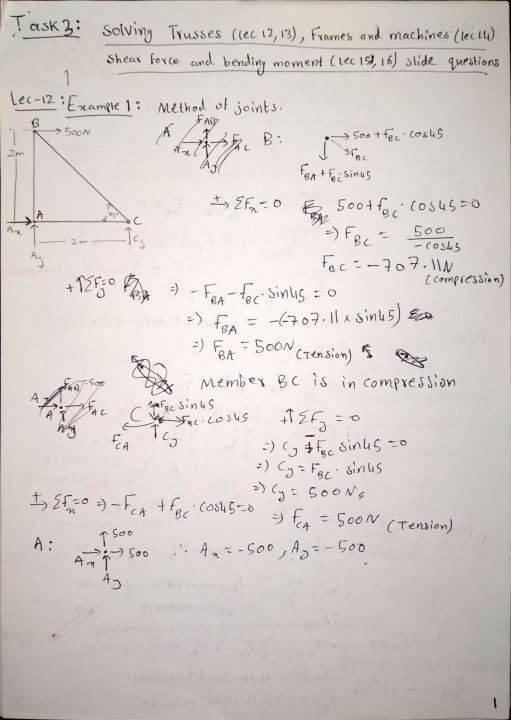 Task 3: Solving Trusses (lec 12,13), Frames and machines (lec 14)
Shear force and bending moment (lec 15, 16) slide questions
Lec-12: Example 1: Method of joints.
B
→500N
2m
A
C
45°
Ax
Ay
2m
Cy
A
FAB
Ax
FAC
Ay
B: →500+fBC·cos45
fBC
FBA+FBC·sin45
+→ ΣFx=0 500+fBC·cos45=0
⇒ FBC = 500/-cos45
FBC=-707.11N
(compression)
+↑ΣFy=0 ⇒ -FBA-fBC·sin45=0
⇒ fBA = -(-707.11×sin45)
⇒ FBA=500N (Tension)
Member BC is in compression
FAB=500
A
FAC
Ay
C
FBC sin45
FBC·cos45
FCA
Cy
+↑ΣFy=0
⇒ Cy-FBC sin45=0
⇒ Cy=FBC·sin45
⇒ Cy=500N
+→ ΣFx=0 ⇒ -FCA+fBC·cos45=0 ⇒ fCA=500N (Tension)
A: ↑500
Ax →500
Ay
∴ Ax=-500, Ay=-500
1